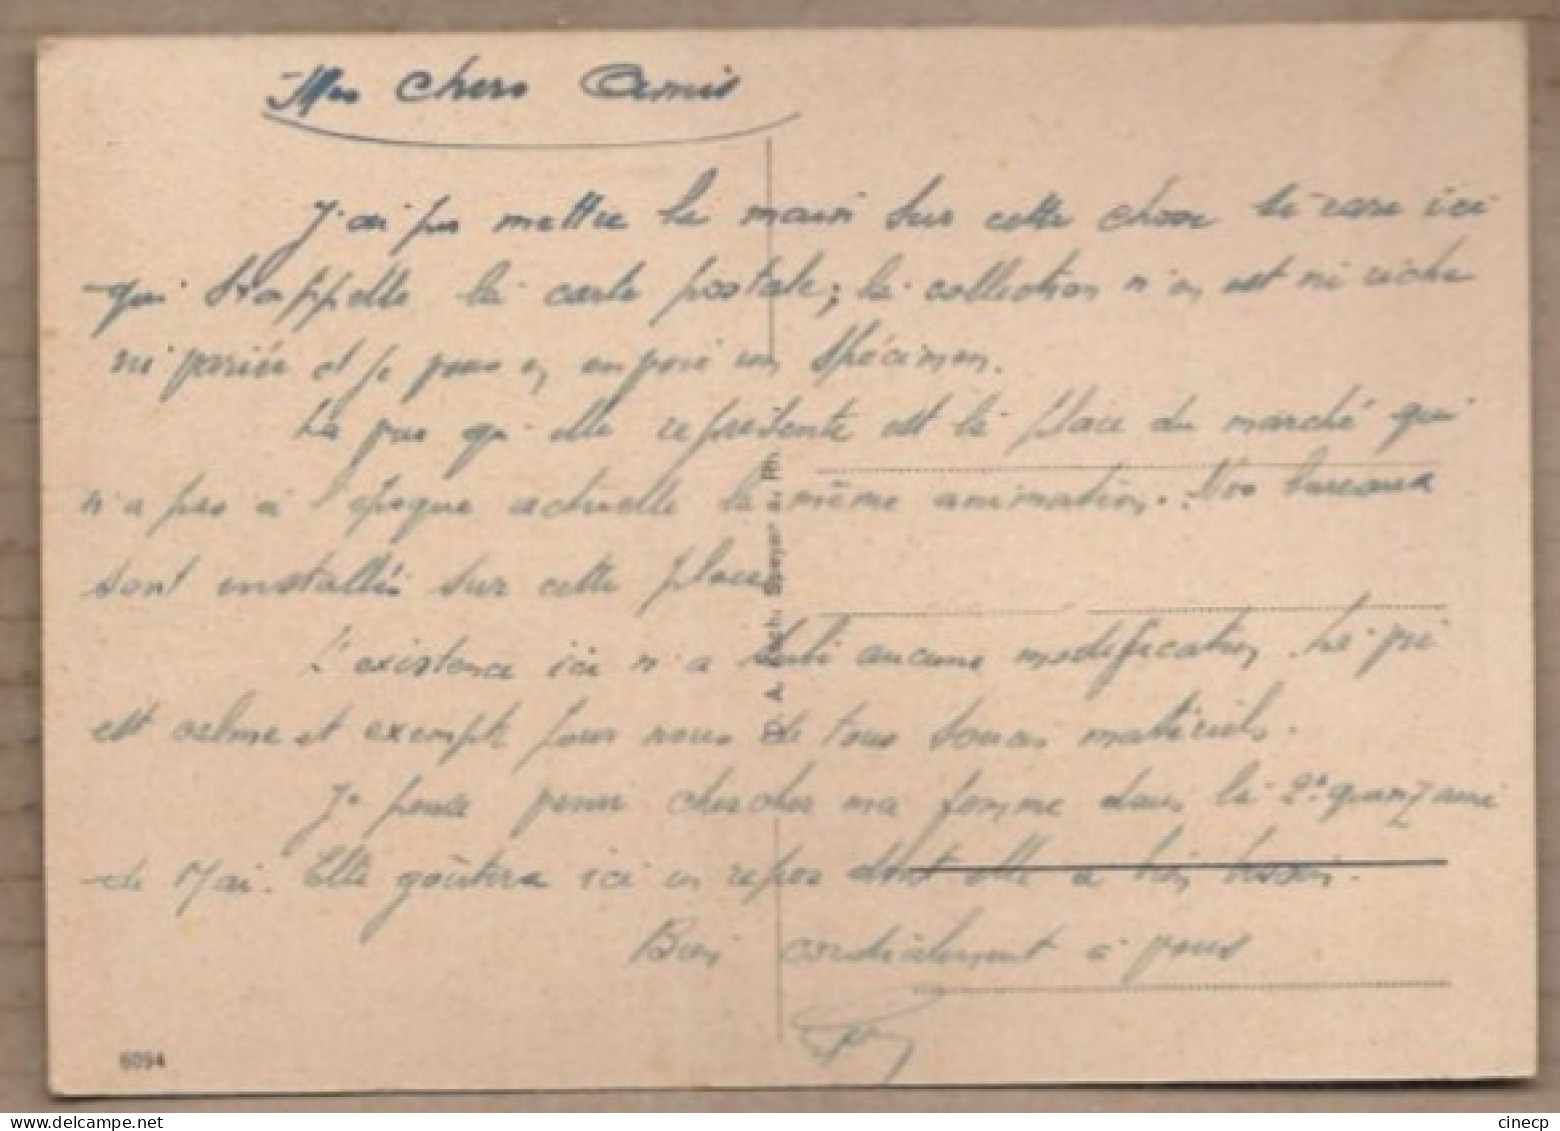 Mes chers Amis
J'ai pu mettre la main sur cette chose si rare ici
qui s'appelle la carte postale; la collection n'en est ni riche
ni variée et je vous en envoie un spécimen.
La vue qu'elle représente est la place du marché qui
n'a pas à l'époque actuelle la même animation. Nos bureaux
sont installés sur cette place.
L'existence ici n'a subi aucune modification. La vie
est calme et exempte pour nous de tous soucis matériels.
Je pense venir chercher ma femme dans la 2e quinzaine
de Mai. Elle goûtera ici un repos dont elle a bien besoin.
Bien cordialement à vous
6094
Speyer a. Rh.
cinecp